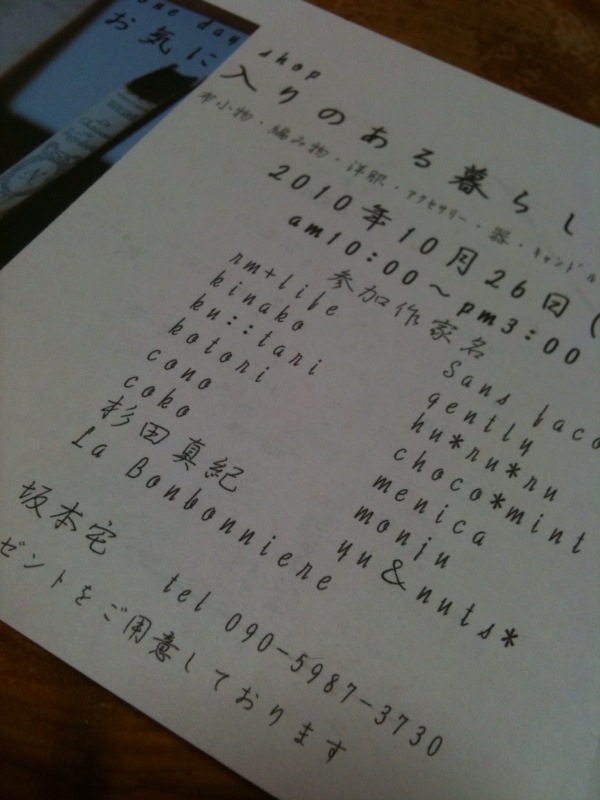 one day shop
お気に入りのある暮らし
布小物・編み物・洋服・アクセサリー・器・キャンドル
2010年10月26日(
am10:00～pm3:00
参加作家名
nm+life
kinako
ku::tari
kotori
cono
coko
杉田真紀
La Bonbonniere
Sans faco
gently
hu*ru*ru
choco*mint
menica
monju
yu&nuts*
坂本宅 tel 090-5987-3730
ゼントをご用意しております